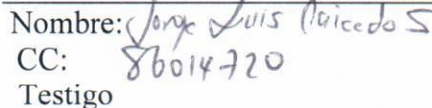 Nombre: Jorge Luis Caicedo S
CC: 86014720
Testigo